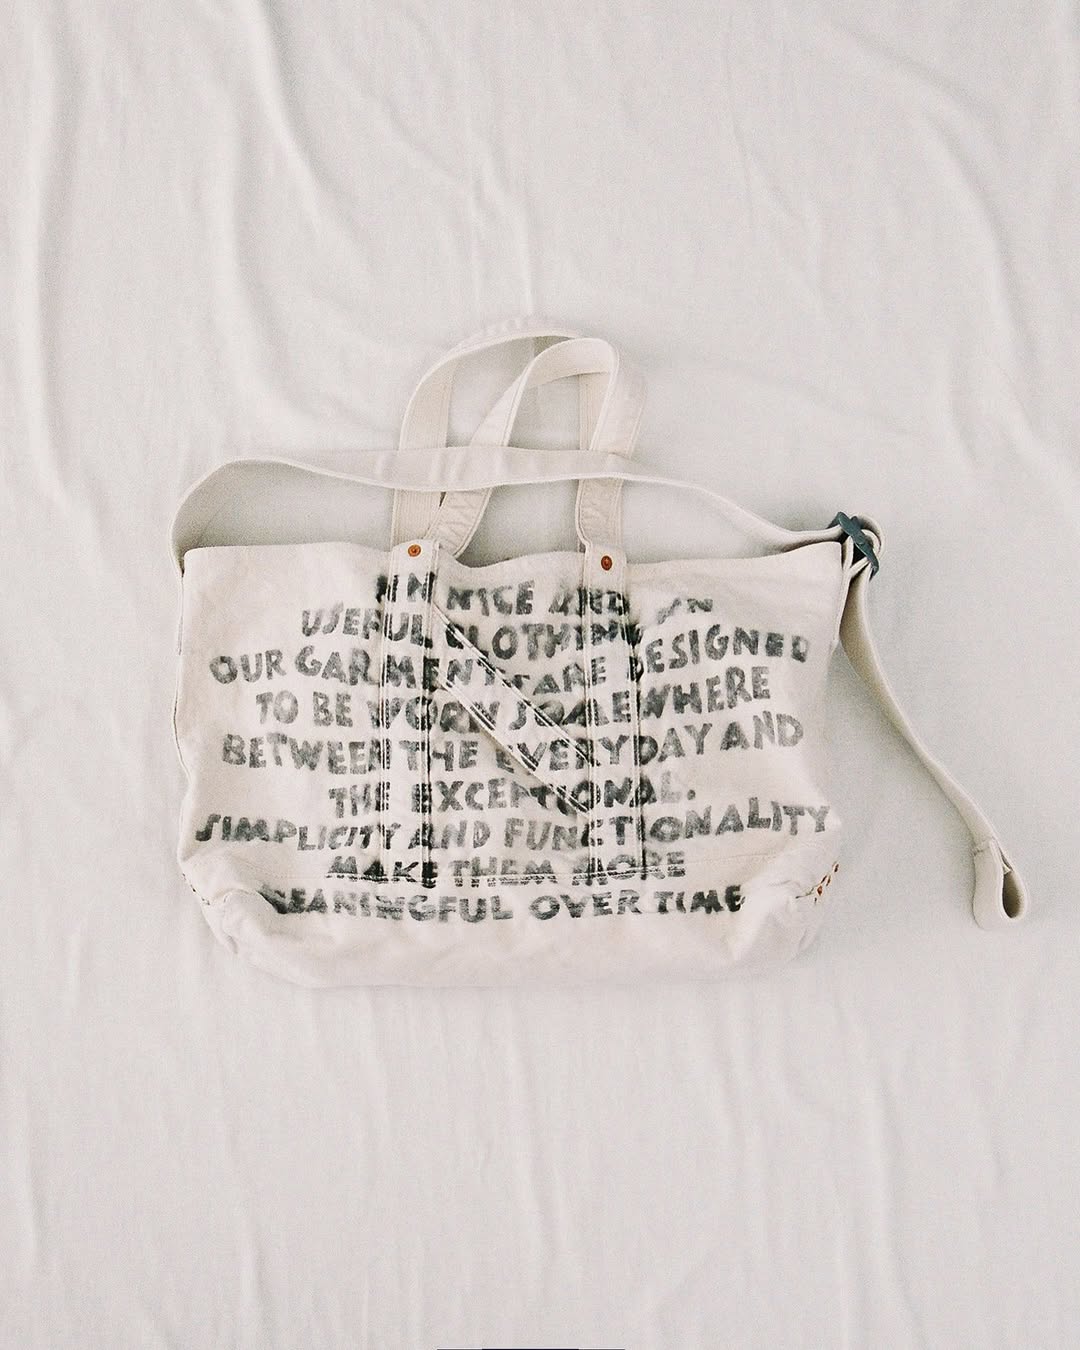 NICE AND
USEFUL CLOTHING
OUR GARMENTS ARE DESIGNED
TO BE WORN SOMEWHERE
BETWEEN THE EVERYDAY AND
THE EXCEPTIONAL.
SIMPLICITY AND FUNCTIONALITY
MAKE THEM MORE
MEANINGFUL OVER TIME